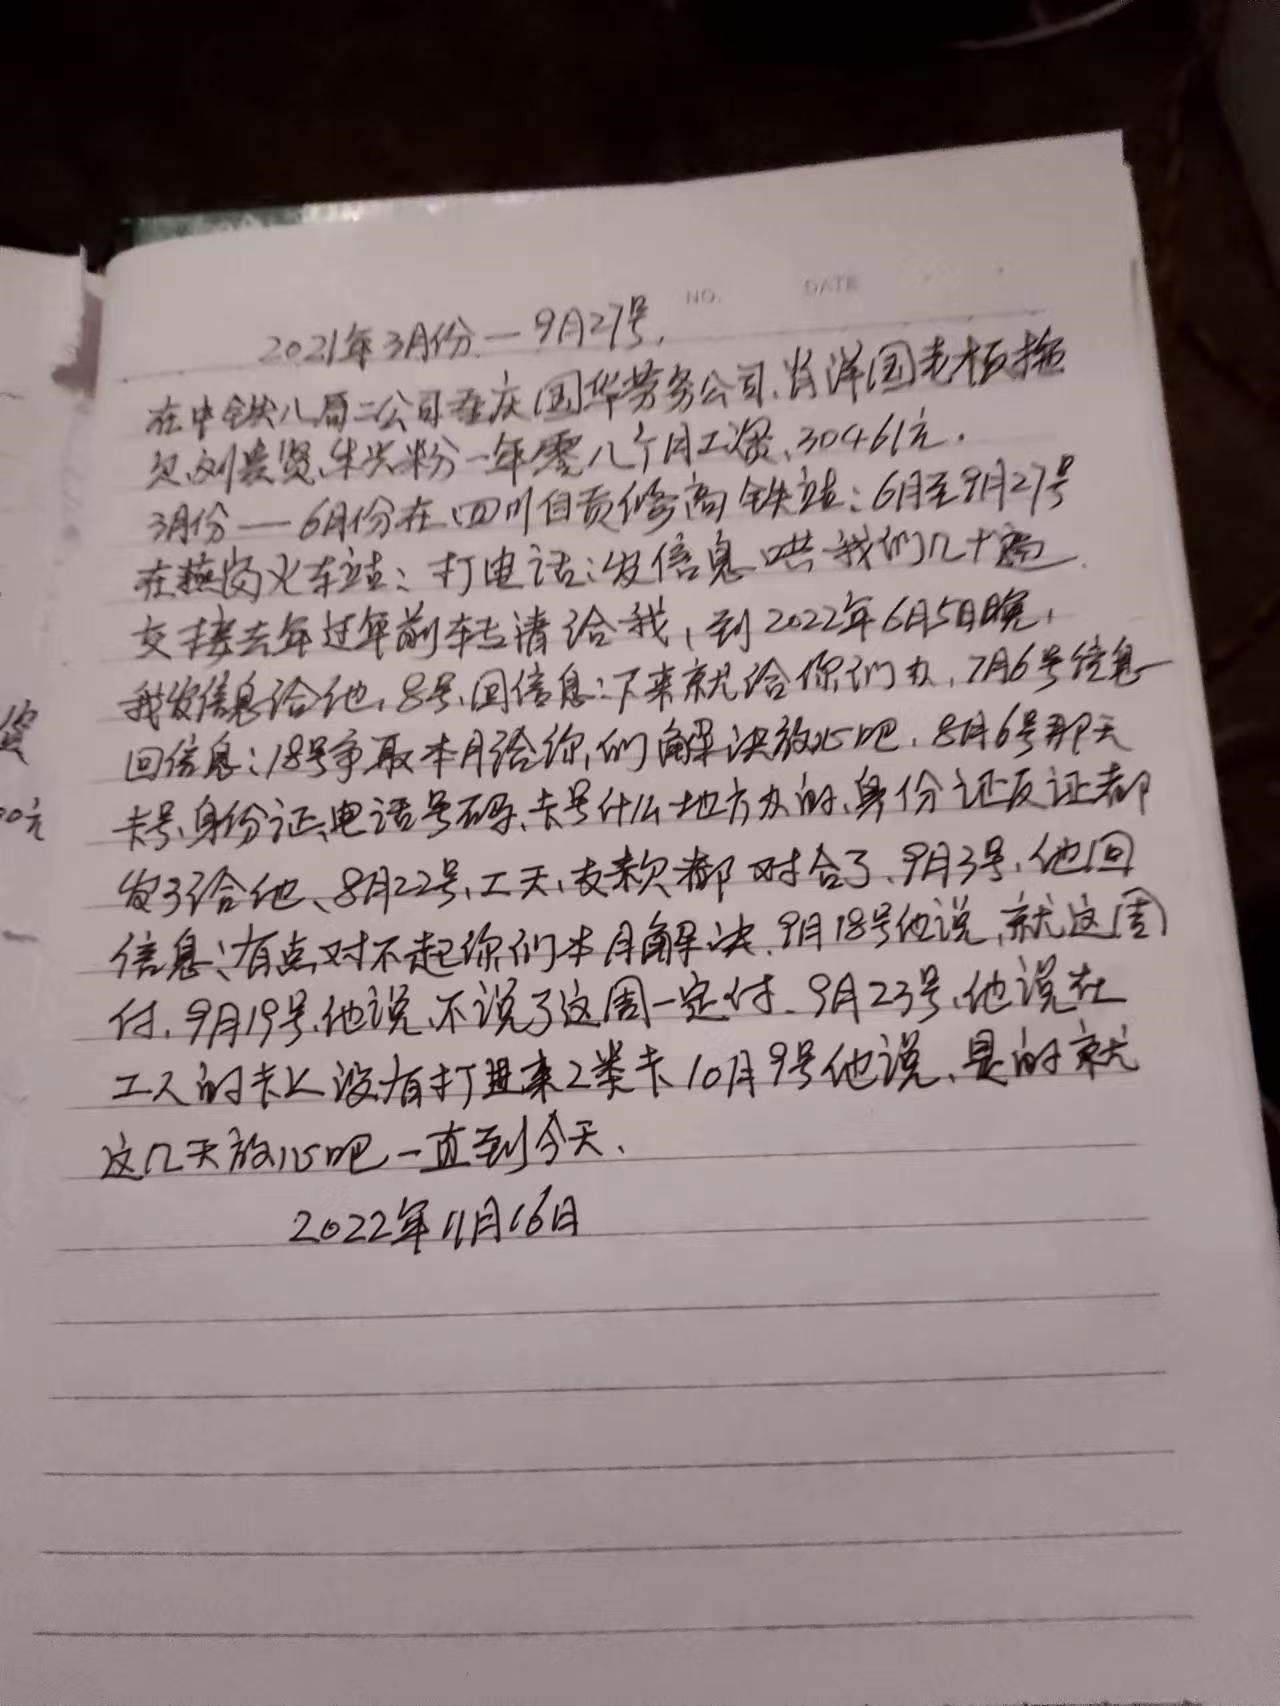 NO. DATE
2021年3月份—9月27号,
在中铁八局二公司重庆国华劳务公司、肖洋国老板拖
欠刘贵贤、牟兴粉一年零八个月工资、30461元.
3月份—6月份在四川自贡修高铁站;6月至9月27号
在燕岗火车站;打电话;发信息哄我们几十遍.
交接去年过年前转清给我,到2022年6月5日晚,
我发信息给他,8号、回信息:下来就给你们办,7月6号信息
回信息:18号争取本月给你们解决放心吧,8月6号那天
卡号、身份证、电话号码、卡号什么地方办的、身份证反证都
发了给他、8月22号、工天、支款都对合了、9月3号、他回
信息:有点对不起你们本月解决、9月18号他说、就这周
付、9月19号、他说、不说了这周一定付.9月23号、他说在
工人的卡上没有打进来2类卡10月9号他说、是的就
这几天放心吧一直到今天、
2022年11月16日
资
00元